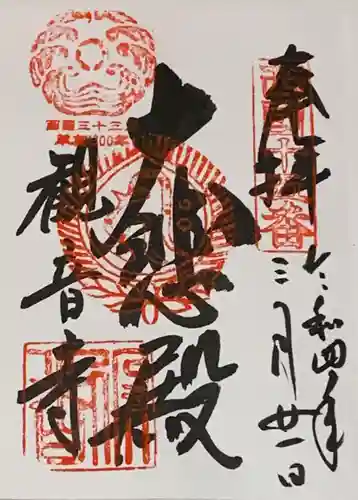 奉拝
令和四年
三月廿一日
大悲殿
観音寺
西国三十三所
草創1300年